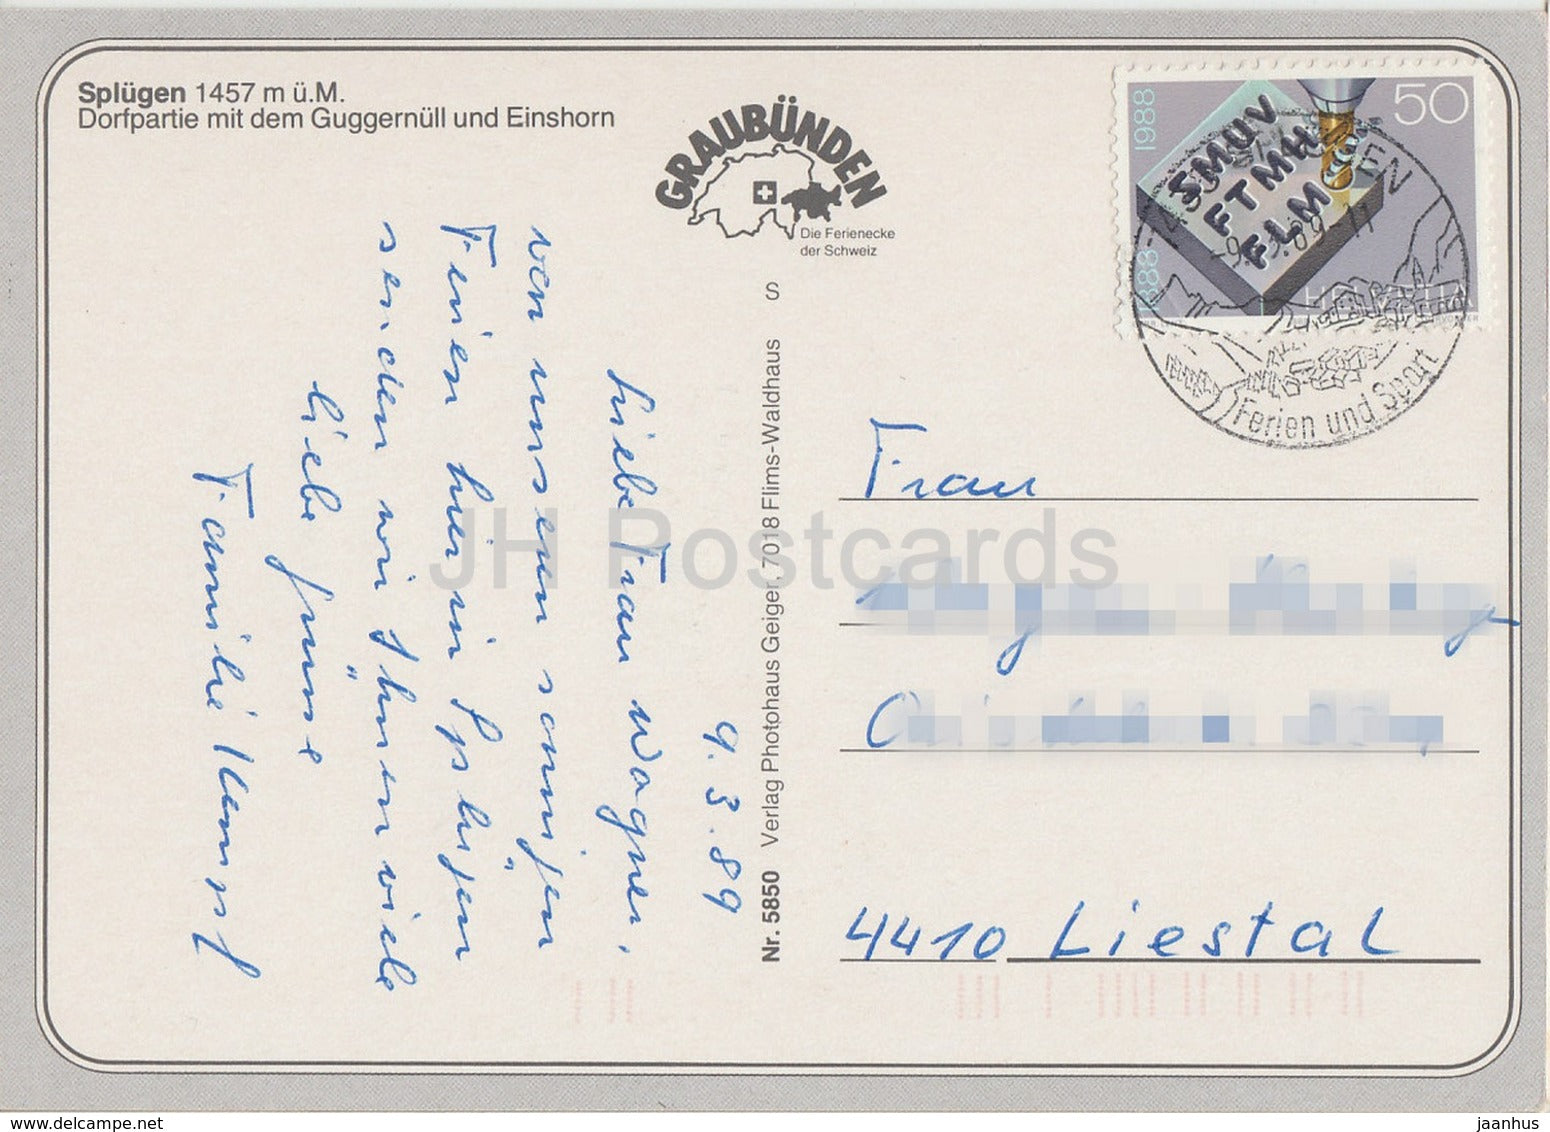 Splügen 1457 m ü.M.
Dorfpartie mit dem Guggernüll und Einshorn
GRAUBÜNDEN
Die Ferienecke
der Schweiz
1888-1988
50
SMUV
FTMH
FLM
HELVETIA
-9.3.89-11
Ferien und Sport
S
Nr. 5850 Verlag Photohaus Geiger, 7018 Flims-Waldhaus
9.3.89
Liebe Frau Wagner,
von unseren sonnigen
Ferien hier in Splügen
senden wir Ihnen viele
liebe Grüsse
Familie
Frau
4410 Liestal
JH Postcards
jaanhus